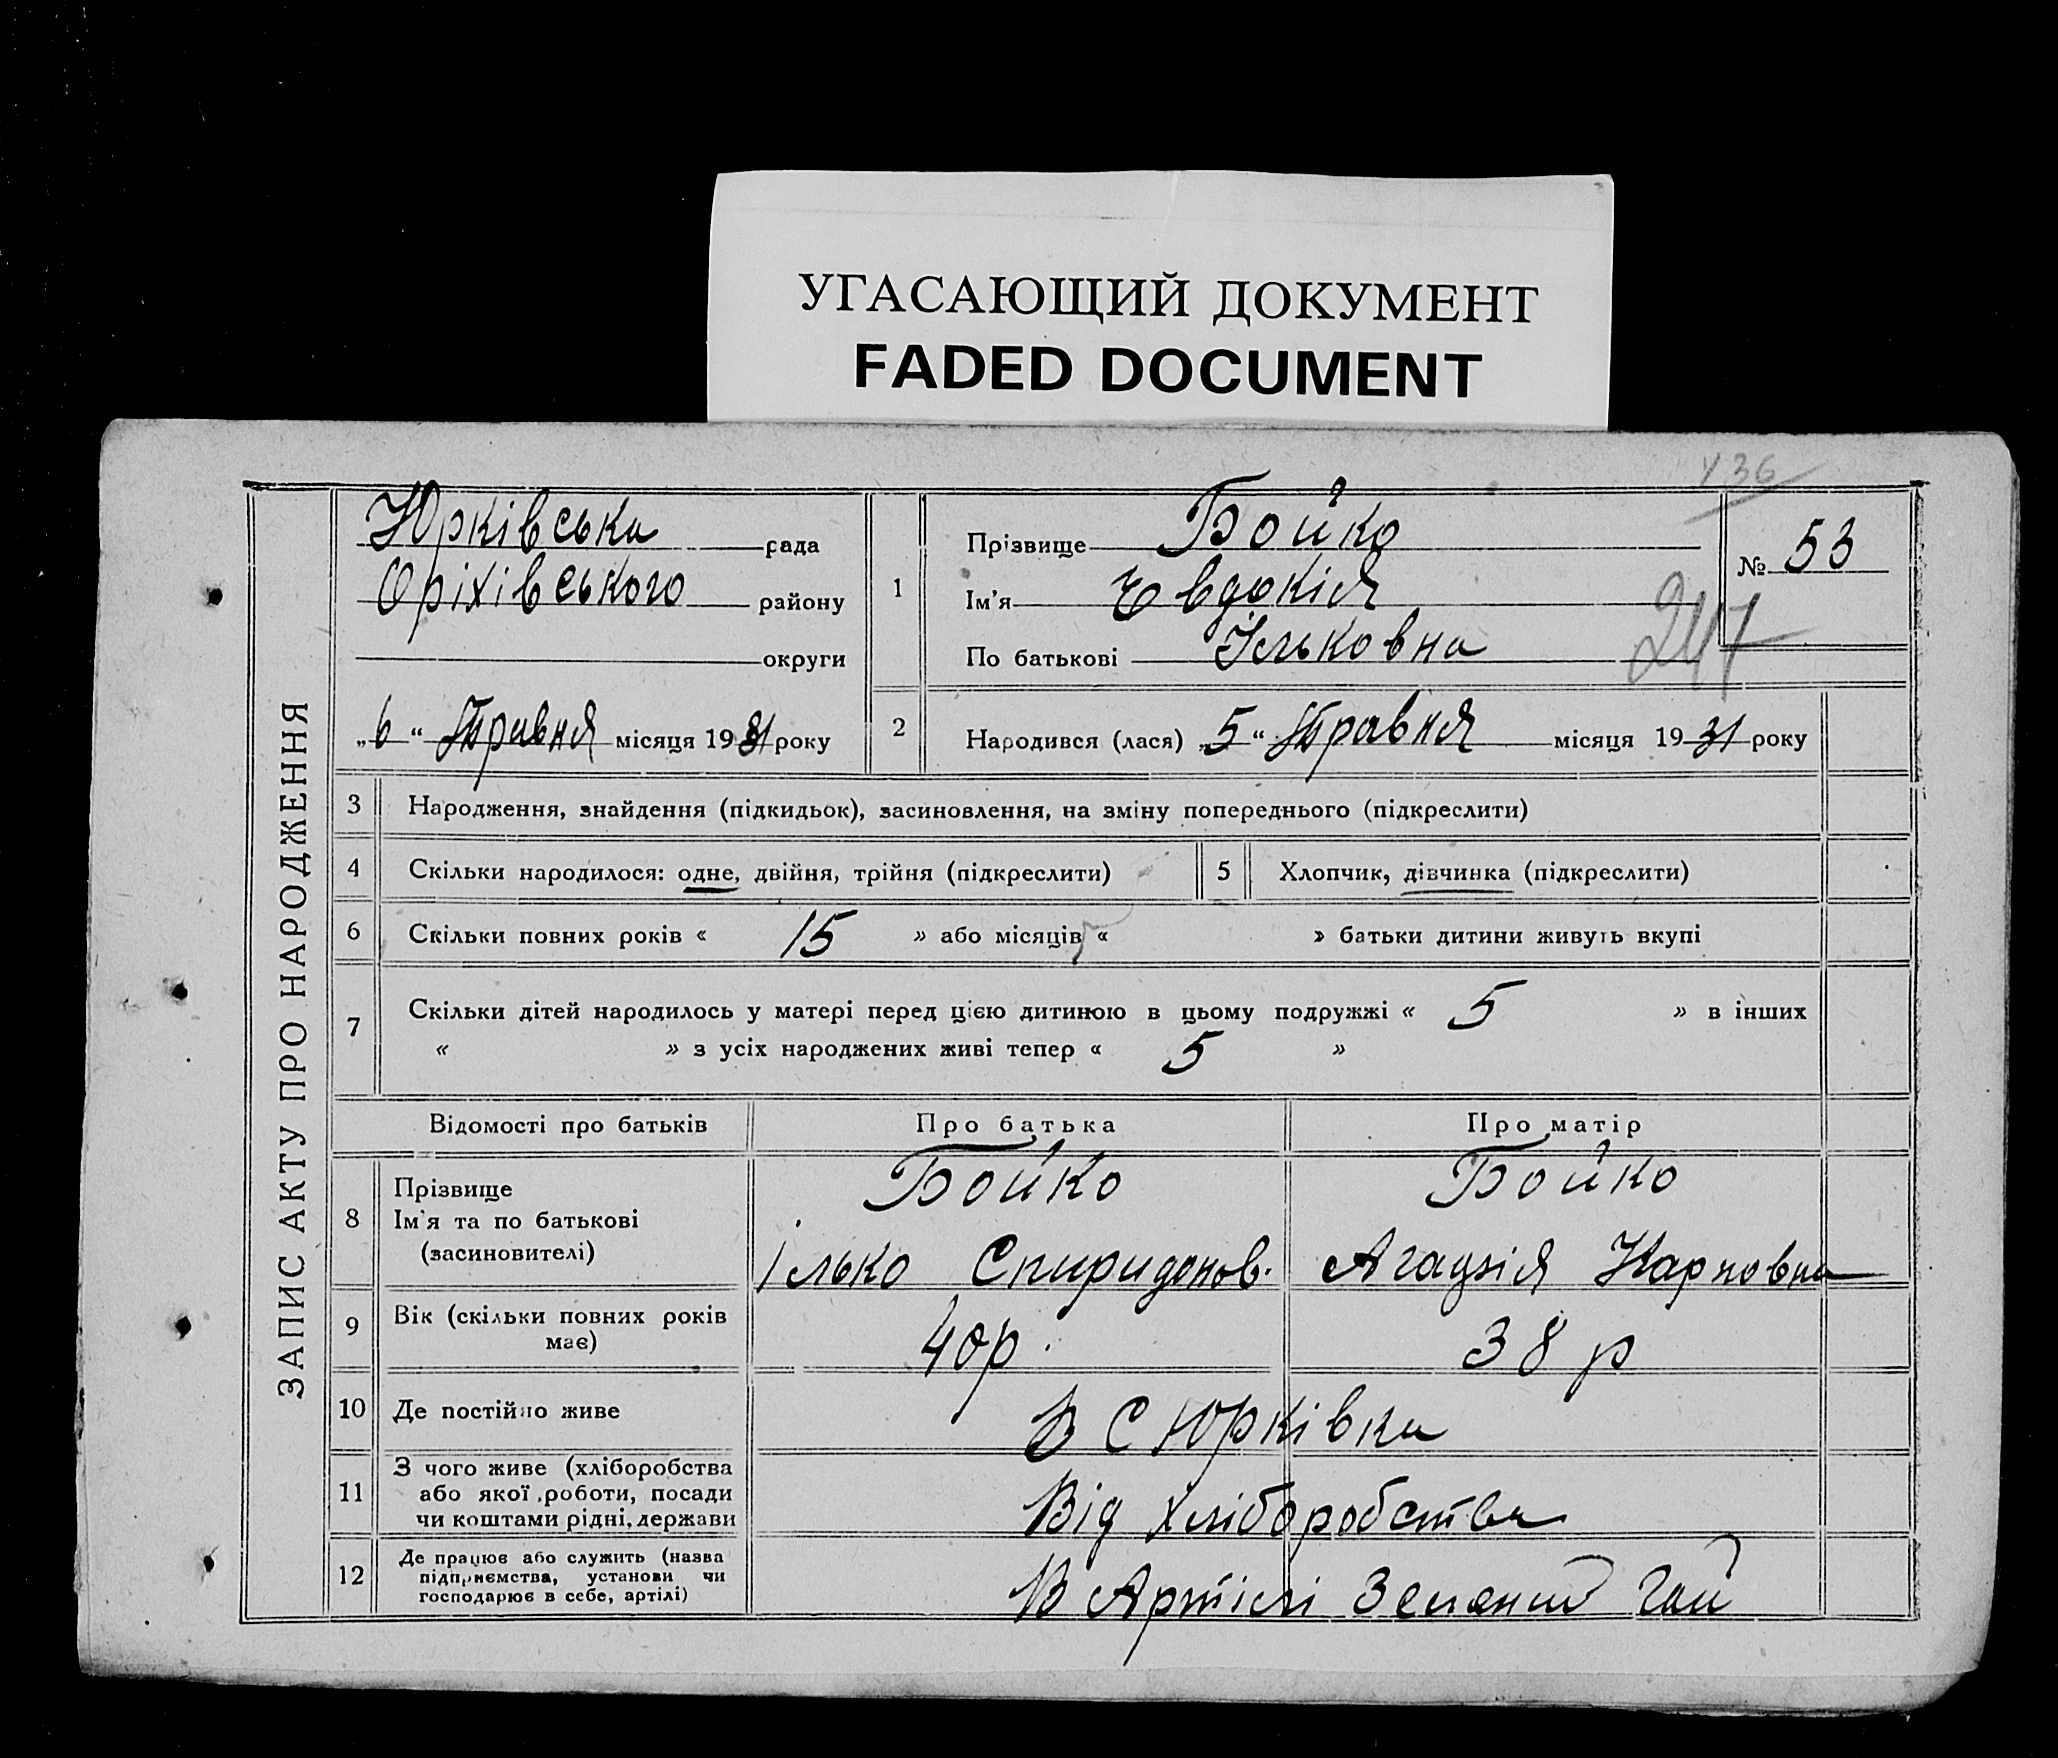 УГАСАЮЩИЙ ДОКУМЕНТ
FADED DOCUMENT
ЗАПИС АКТУ ПРО НАРОДЖЕННЯ
Юрківська рада
Оріхівського району
округи
„6“ Травня місяця 1931 року
436
№ 53
1 Прізвище Бойко
Ім'я Евдокія
По батькові Ільковна
2 Народився (лася) „5“ Травня місяця 1931 року
3 Народження, знайдення (підкидьок), засиновлення, на зміну попереднього (підкреслити)
4 Скільки народилося: одне, двійня, трійня (підкреслити) 5 Хлопчик, дівчинка (підкреслити)
6 Скільки повних років « 15 » або місяців « » батьки дитини живуть вкупі
7 Скільки дітей народилось у матері перед цією дитиною в цьому подружжі « 5 » в інших
« » з усіх народжених живі тепер « 5 »
Відомості про батьків Про батька Про матір
8 Прізвище Бойко Бойко
Ім'я та по батькові
(засиновителі) Ілько Спиридонов. Агафія Карповна
9 Вік (скільки повних років
має) 40 р. 38 р
10 Де постійно живе В С Юрківка
11 З чого живе (хліборобства
або якої роботи, посади
чи коштами рідні, держави Від хліборобства
12 Де працює або служить (назва
підприємства, установи чи
господарює в себе, артілі) В Артілі Зелений Гай